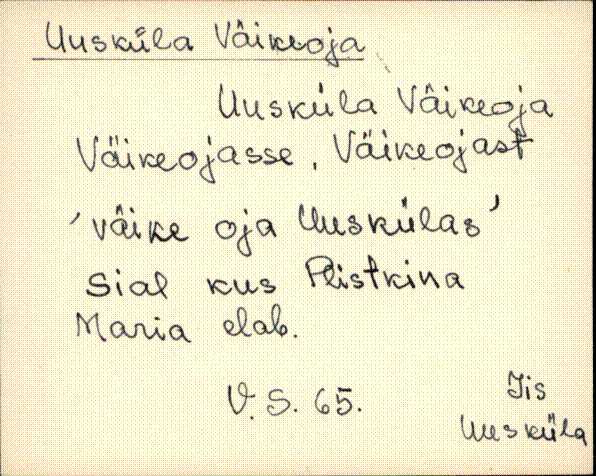 Uusküla Väikeoja
Uusküla Väikeoja
Väikeojasse, Väikeojast
'väike oja Uuskülas'
Sial kus Plistkina
Maria elab.
V. S. 65.
Iis
Uusküla